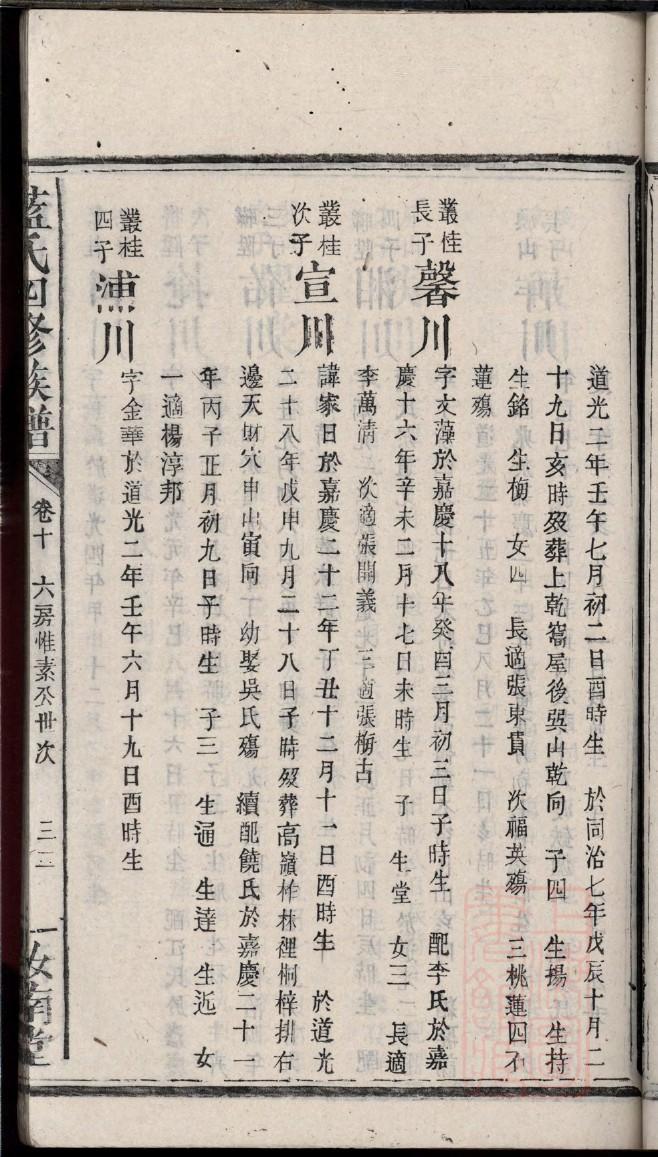 道光二年壬午七月初二日酉時生　於同治七年戊辰十月二
十九日亥時殁葬上乾窩屋後巽山乾向　子四　生揚　生持
生銘　生梅　女四　長適張東貫　次福英殤　三桃蓮四石
蓮殤
叢桂
長子
馨川
字文藻於嘉慶十八年癸酉三月初三日子時生　配李氏於嘉
慶十六年辛未二月十七日未時生　子　生堂　女三　長適
李萬清　次適張開義　三適張梅古
叢桂
次子
宣川
諱家日於嘉慶二十二年丁丑十二月十一日酉時生　於道光
二十八年戊申九月二十八日子時殁葬高嶺柞林裡桐梓排右
邊天財穴申山寅向　幼娶吳氏殤　續配饒氏於嘉慶二十一
年丙子正月初九日子時生　子三　生通　生達　生近　女
一適楊淳邦
叢桂
四子
漁川
字金華於道光二年壬午六月十九日酉時生
藍氏四修族譜
卷十　六房惟素公世次
汝南堂